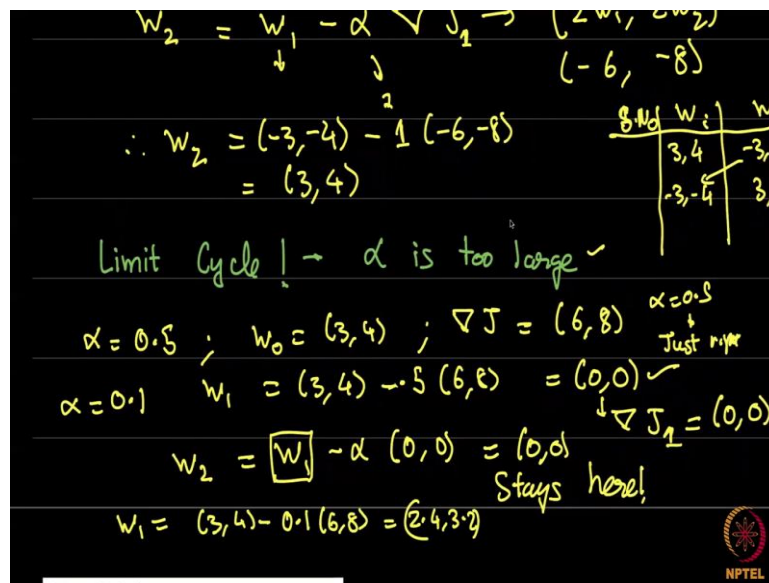 W₂ = W₁ - α ∇ J₁ → (2W₁, 2W₂)
(-6, -8)
∴ W₂ = (-3,-4) - 1 (-6,-8)
= (3,4)
S.No Wᵢ W
3,4 -3,
-3,-4 3,
Limit Cycle! → α is too large ✓
α = 0.5 ; W₀ = (3,4) ; ∇J = (6,8)
α=0.5
↓
Just
α=0.1 W₁ = (3,4) - .5 (6,8) = (0,0) ✓
↓ ∇J₁ = (0,0)
W₂ = W₁ - α (0,0) = (0,0)
Stays here!
W₁ = (3,4) - 0.1 (6,8) = (2.4,3.2)
NPTEL